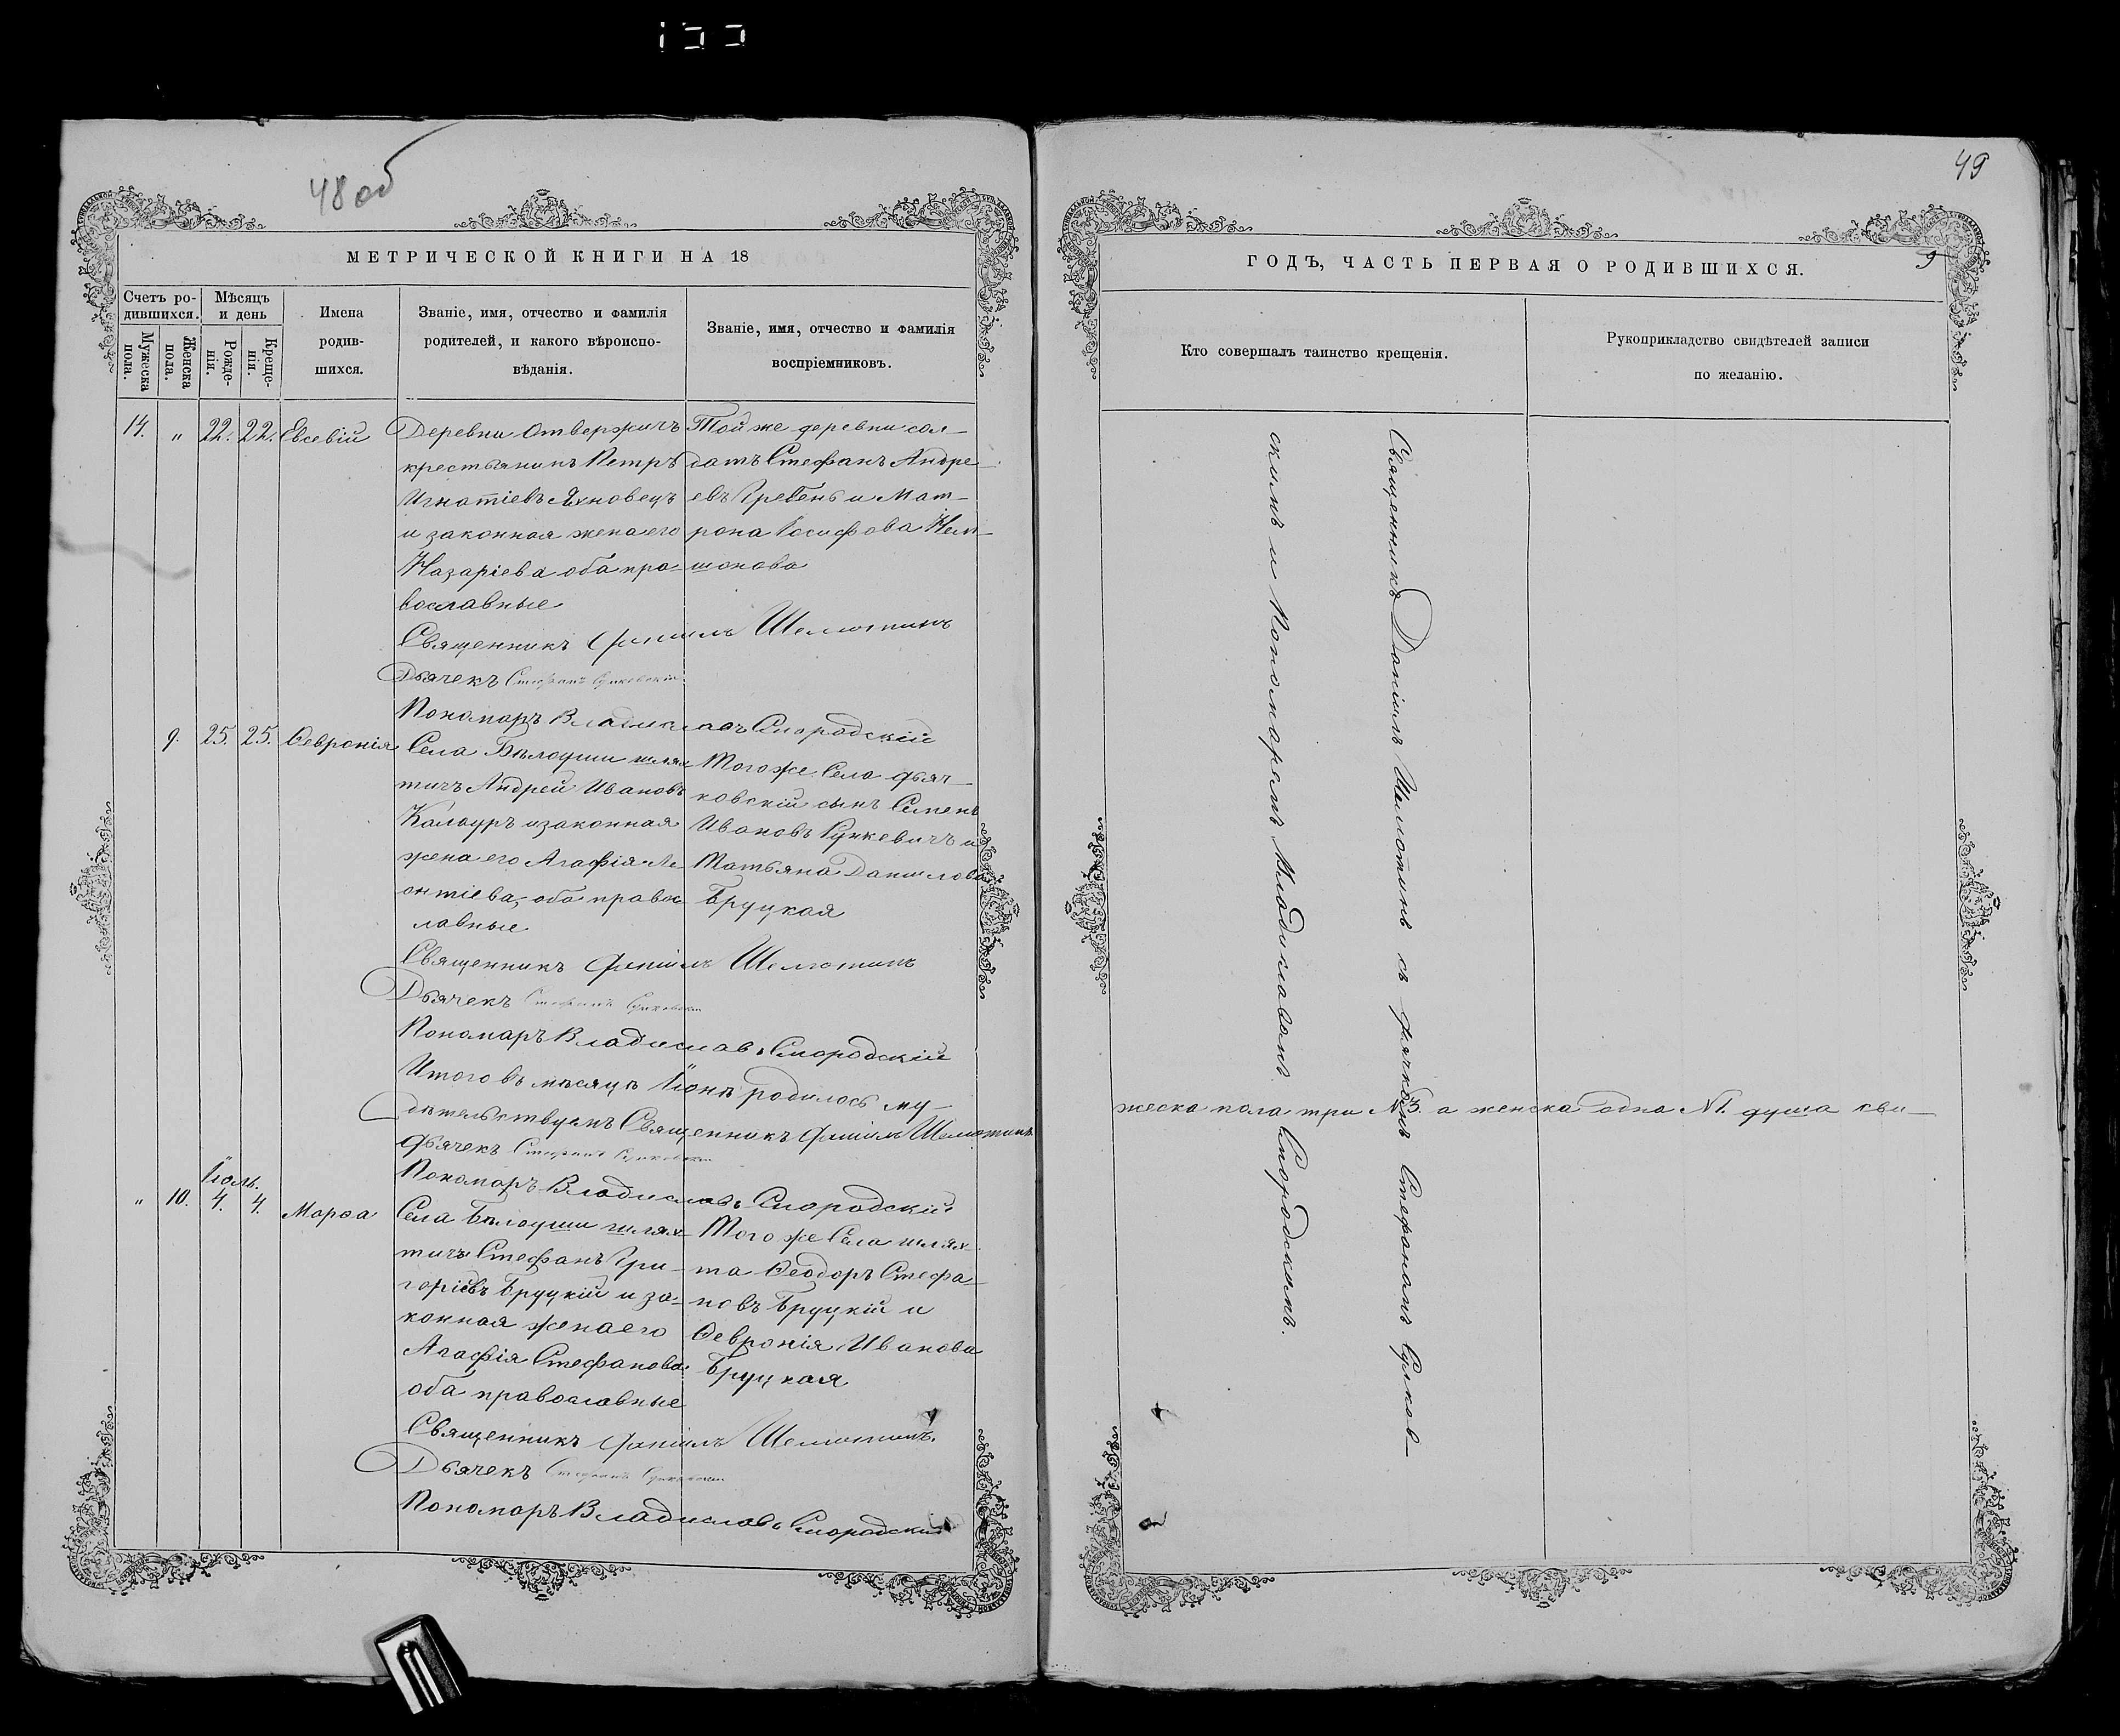 48 об
МЕТРИЧЕСКОЙ КНИГИ НА 18
Счетъ родившихся.
Мужеска пола.
Женска пола.
Мѣсяцъ и день
Рожденія.
Крещенія.
Имена родившихся.
Званіе, имя, отчество и фамилія родителей, и какого вѣроисповѣданія.
Званіе, имя, отчество и фамилія воспріемниковъ.
14. „ 22. 22. Евсевій
Деревни Отвержичъ
крестьянинъ Петръ
Игнатіевъ Яхновецъ
и законная жена его
Назаріева оба пра-
вославные
Той же деревни сол-
датъ Стефанъ Андре-
евъ Гребень и Мат-
рона Іосифова Нем-
шонова
Священникъ Даніилъ Шелютинъ
Дьячекъ Стефанъ
Пономаръ Владиславъ Смородскій
9. 25. 25. Ѳевронія
Села Бѣлоуши шлях-
тичъ Андрей Ивановъ
Калауръ и законная
жена его Агафія Ле-
онтіева, оба правос-
лавные
Того же Села дьяч-
ковскій сынъ Семенъ
Ивановъ Рункевичъ и
Татьяна Данилова
Бруцкая
Священникъ Даніилъ Шелютинъ
Дьячекъ Стефанъ
Пономаръ Владиславъ Смородскій
Итого въ мѣсяцѣ Іюнѣ родилось му-
жеска пола три №3. а женска одна №1. душа сви-
дѣтельствуемъ Священникъ Даніилъ Шелютинъ
Дьячекъ Стефанъ
Пономаръ Владиславъ Смородскій
Іюль.
„ 10. 4. 4. Марѳа
Села Бѣлоуши шлях-
тичъ Стефанъ Гри-
горіевъ Бруцкій и за-
конная жена его
Агафія Стефанова
оба православные
Того же Села шлях-
та Ѳеодоръ Стефа-
новъ Бруцкій и
Ѳевронія Иванова
Бруцкая
Священникъ Даніилъ Шелютинъ.
Дьячекъ Стефанъ
Пономаръ Владиславъ Смородскій
49
9
ГОДЪ, ЧАСТЬ ПЕРВАЯ О РОДИВШИХСЯ.
Кто совершалъ таинство крещенія.
Рукоприкладство свидѣтелей записи по желанію.
Священникъ Даніилъ Шелютинъ съ дьячкомъ Стефаномъ
скимъ и Пономаремъ Владиславомъ Смородскимъ.